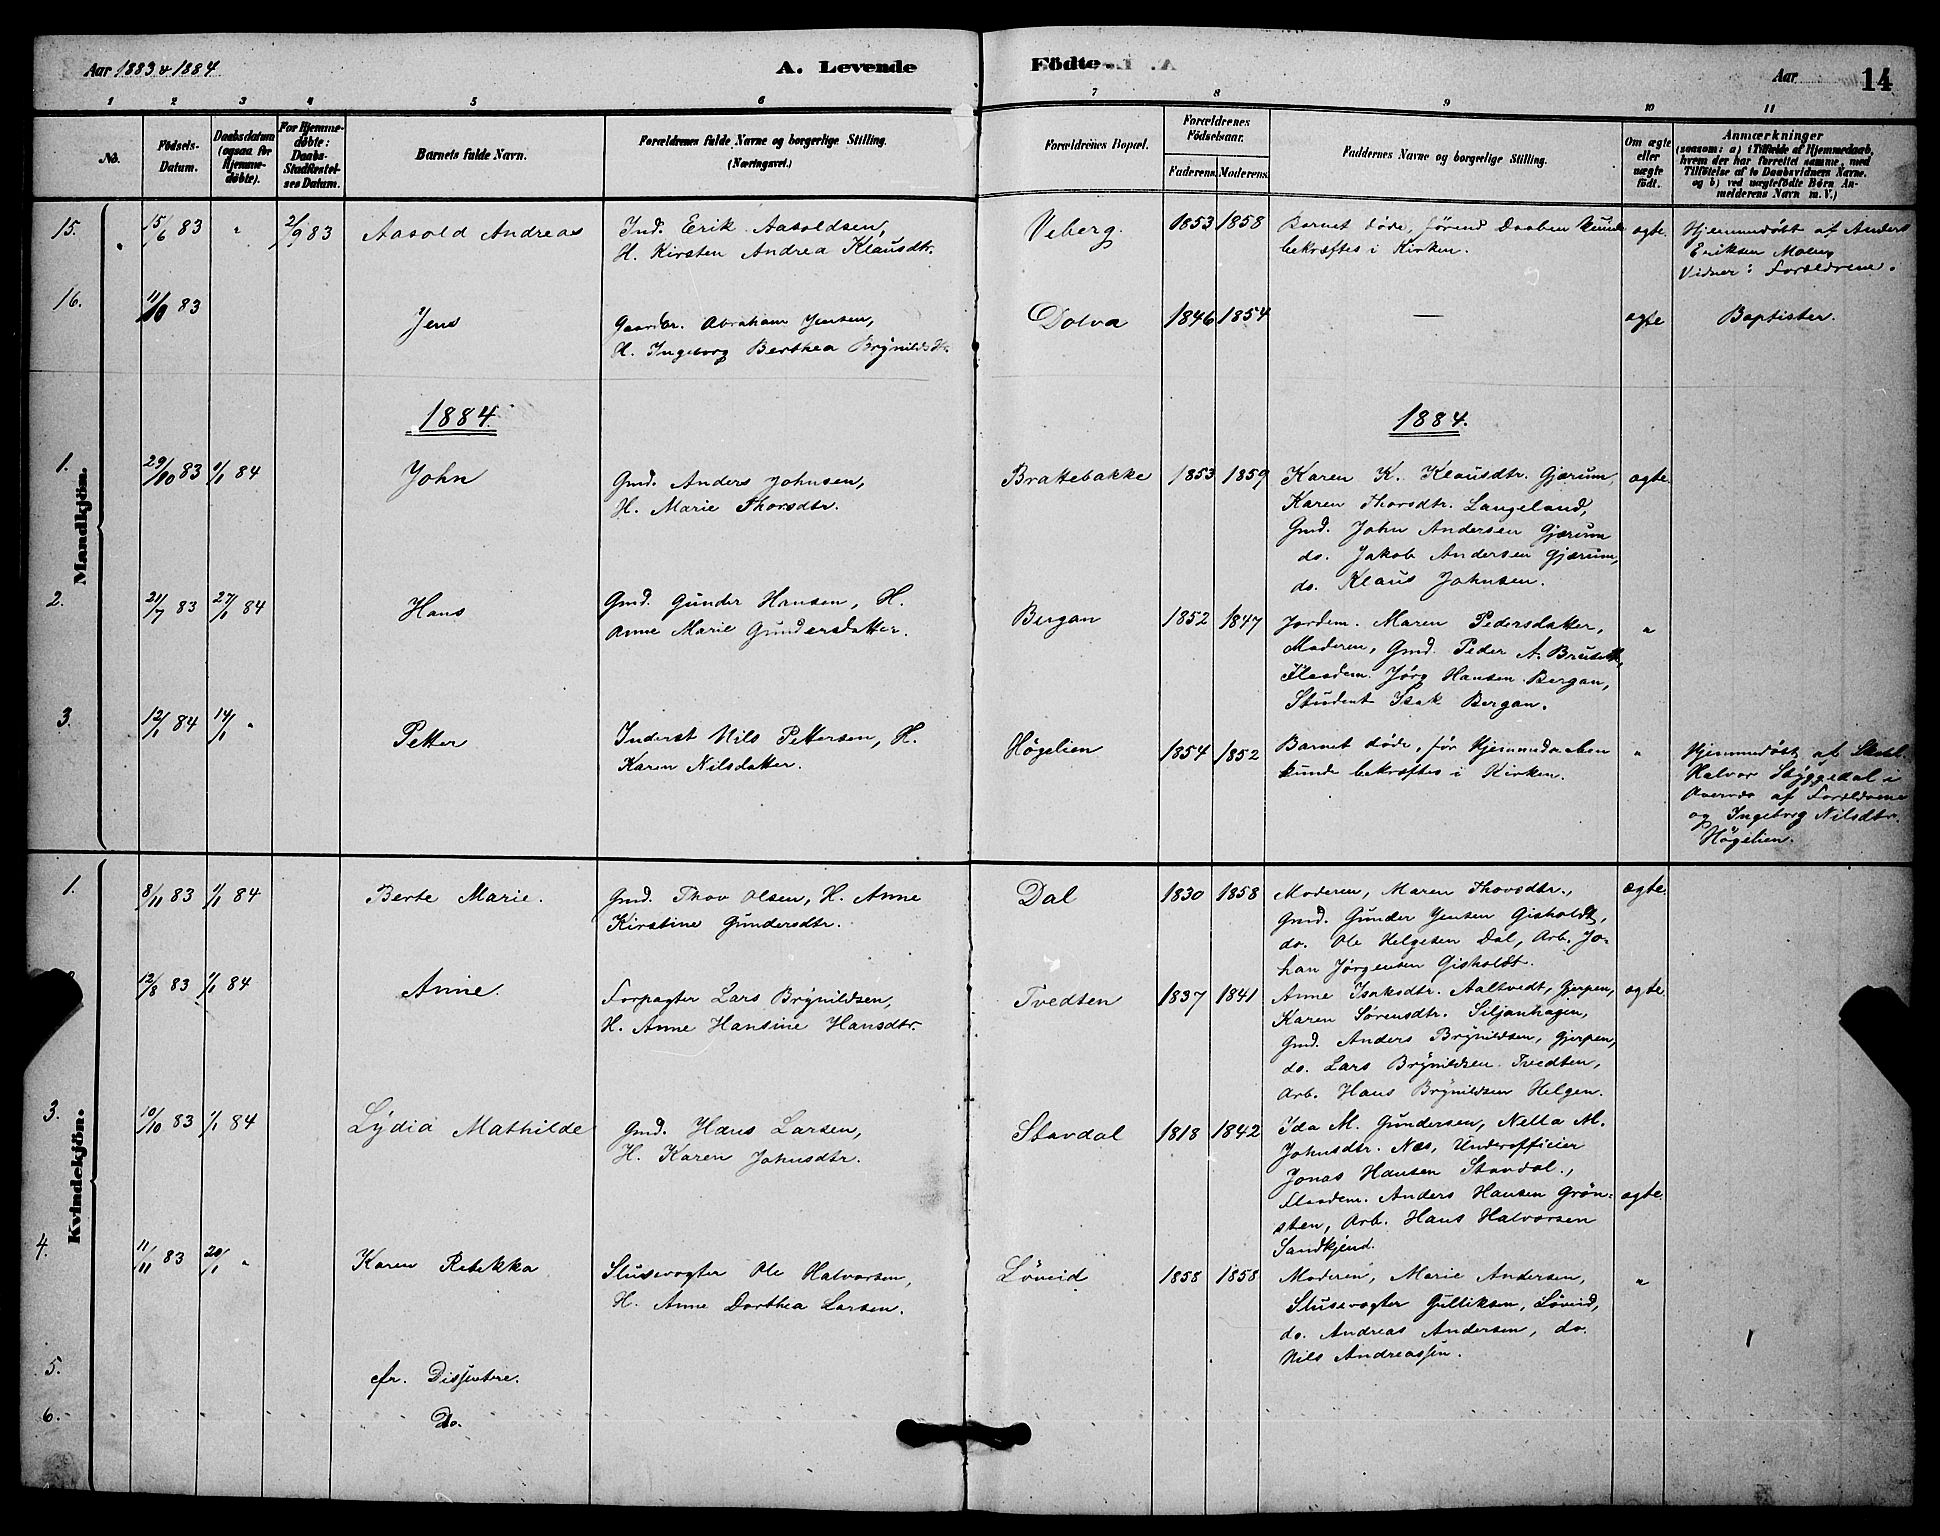 Aar 1883 & 1884
A. Levende
Födte.
Aar
14
1 2 3 4 5 6 7 8 9 10 11
No.
Födsels-
Datum.
Daabsdatum
(ogsaa for
Hjemme-
døbte).
For Hjemme-
døbte:
Daabs-
Stadfæstel-
ses Datum.
Barnets fulde Navn.
Forældrenes fulde Navne og borgerlige Stilling.
(Næringsvei.)
Forældrenes Bopæl.
Forældrenes
Födselsaar.
Faderens. Moderens.
Faddernes Navne og borgerlige Stilling.
Om ægte
eller
uægte
født.
Anmærkninger
(saasom: a) i Tilfælde af Hjemmedaab,
hvem der har forrettet samme, med
Tilføielse af to Daabsvidners Navne.
og b) ved uægtefødte Børn An-
melderens Navn m. V.)
Mandkjön.
15.
15/6 83
"
2/9 83
Aasold Andreas
Ind. Erik Aasoldsen,
H. Kirsten Andrea Klausdtr.
Veberg.
1853 1858
Barnet døde, førend Daaben kunde
bekræftes i Kirken.
ægte
Hjemmedøbt af Anders
Eriksen Moen
Vidner: Forældrene.
16.
83
Jens
Gaardbr. Abraham Jensen,
H. Ingeborg Berthea Brynildsdtr.
Dolva
1846 1854
—
ægte
Baptister.
1884.
1884.
1.
29/10 83
1/1 84
John
Gmd. Anders Johnsen,
H. Marie Thorsdtr.
Brattebakke
1853 1859
Karen K. Klausdtr. Gjærum,
Karen Thorsdtr. Langeland,
Gmd. John Andersen Gjærum
do. Jakob Andersen Gjærum,
do. Klaus Johnsen.
ægte
2.
21/7 83
27/1 84
Hans
Gmd. Gunder Hansen, H.
Anne Marie Gundersdatter.
Bergan
1852 1847
Jordem. Maren Pedersdatter,
Moderen, Gmd. Peder A.
Flaadem. Jørg Hansen Bergan,
Student Isak Bergan.
"
3.
12/1 84
14/1 "
Petter
Inderst Nils Pettersen, H.
Karen Nilsdatter.
Högelien
1854 1852
Barnet døde, før Hjemmedaaben
kunde bekræftes i Kirken.
"
Hjemmedøbt af
Halvor Styggedal i
Overvær af Forældrene
og Ingeborg Nilsdtr.
Högelien.
Kvindekjön.
1.
8/11 83
1/1 84
Berte Marie.
Gmd. Thov Olsen, H. Anne
Kirstine Gundersdtr.
Dal
1830 1858
Moderen, Maren Thovsdtr.,
Gmd. Gunder Jensen Gisholdt,
do. Ole Helgesen Dal, Arb. Jo-
han Jørgensen Gisholdt.
ægte
12/8 83
1/1 84
Anne.
Forpagter Lars Brynildsen,
H. Anne Hansine Hansdtr.
Tvedten
1837 1841
Anne Isaksdtr. Aaltvedt, Gjerpen,
Karen Sørensdtr. Siljanhagen,
Gmd. Anders Brynildsen, Gjerpen,
do. Lars Brynildsen Tvedten,
Arb. Hans Brynildsen Helgen.
ægte
3.
10/10 83
1/1 84
Lydia Mathilde
Gmd. Hans Larsen,
H. Karen Johnsdtr.
Stavdal
1818 1842
Ida M. Gundersen, Nella M.
Johnsdtr. Næs, Underofficier
Jonas Hansen Stavdal.,
Flaadem. Anders Hansen Grön-
sten, Arb. Hans Halvorsen
Sandkjend.
ægte
4.
11/11 83
20/1 "
Karen Rebekka
Slusevogter Ole Halvorsen,
H. Anne Dorthea Larsen.
Löveid
1858 1858
Moderen, Marie Andersen,
Slusevogter Gulliksen, Löveid,
do. Andreas Andersen, do.
Nils Andreassen.
"
5.
cfr. Dissentere.
6.
Do.